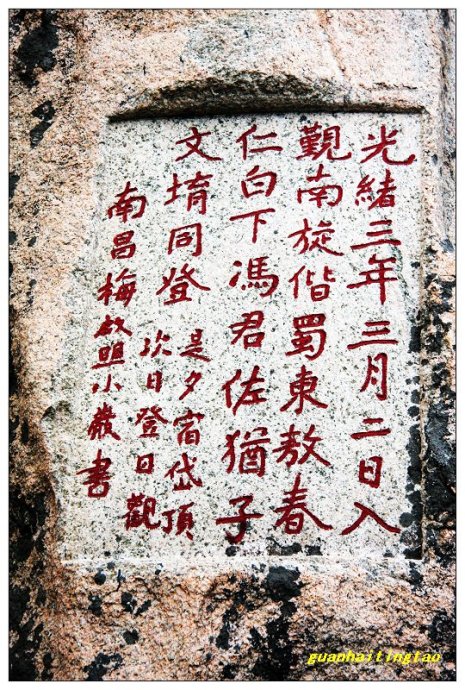 光緒三年三月二日入
覲南旋偕蜀東敖春
仁白下馮君佐猶子
文堉同登 是夕宿岱頂
次日登日觀
南昌梅啟照小巖書
guanhaitingtao